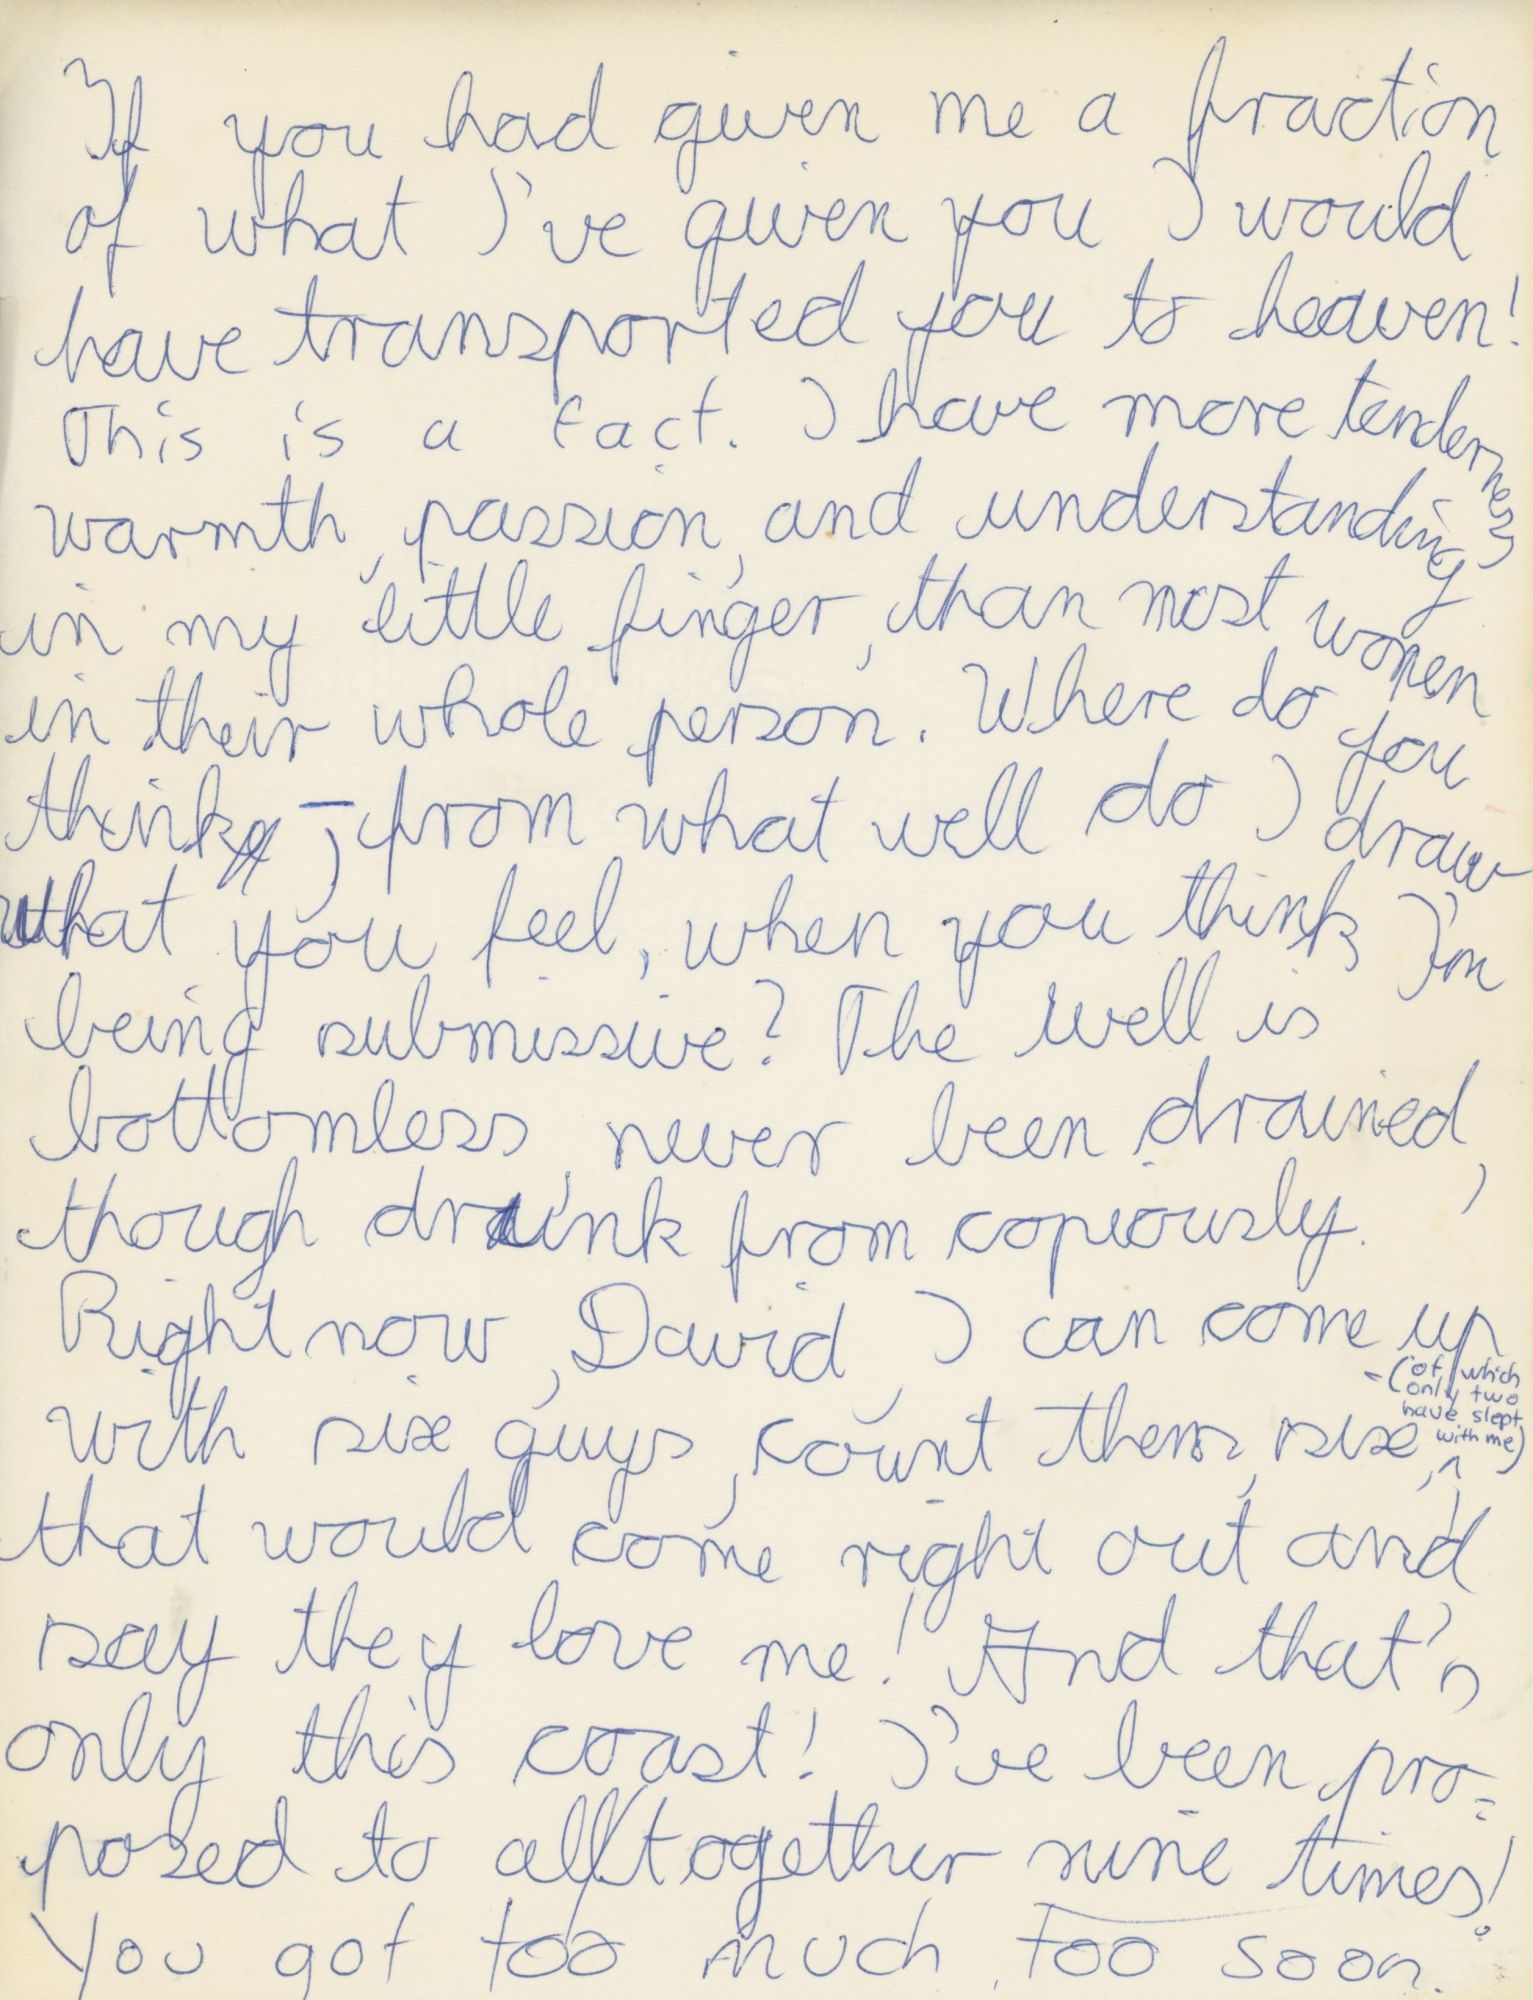 If you had given me a fraction
of what I've given you I would
have transported you to heaven!
This is a fact. I have more tenderness,
warmth, passion, and understanding
in my little finger, than most women
in their whole person. Where do you
think, - from what well do I draw
what you feel, when you think I'm
being submissive? The well is
bottomless, never been drained,
though drunk from copiously.
Right now, David, I can come up
with six guys, count them, six, (of which only two have slept with me)
that would come right out and
say they love me! And that's
only this coast! I've been pro-
posed to alltogether nine times!
You got too much, too soon.